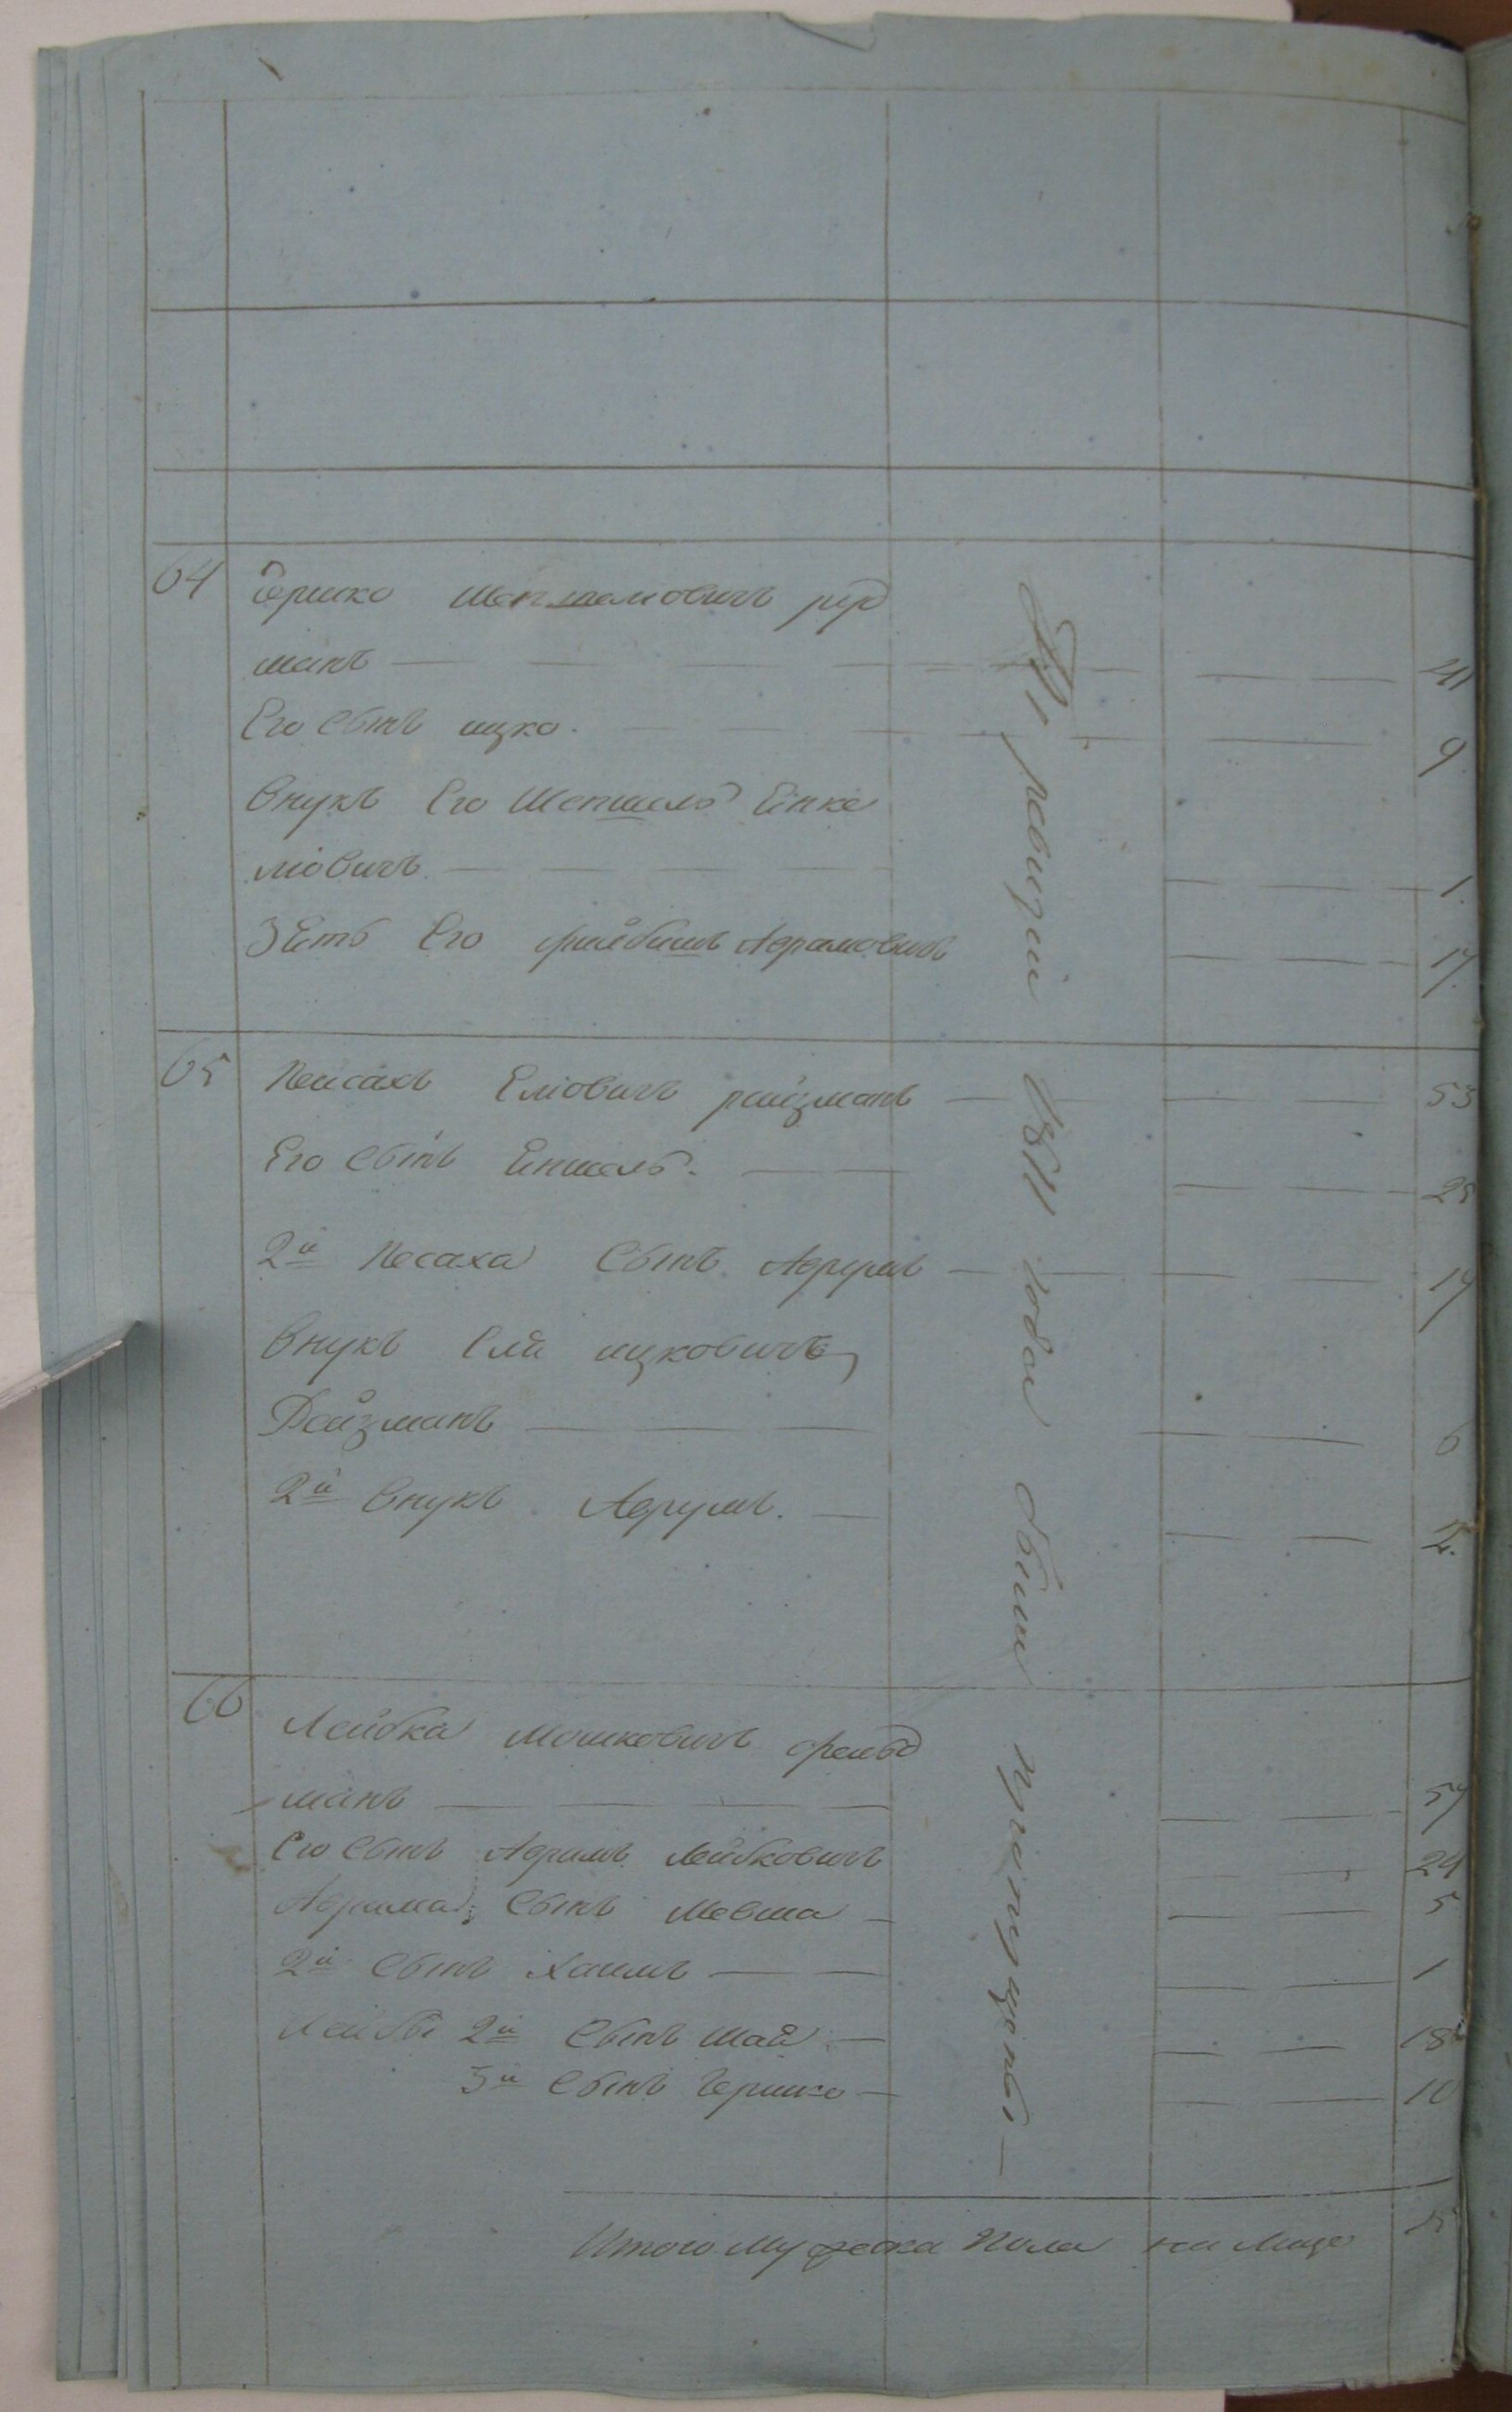 64 Гершко Шепшелиовичъ рер
манъ — — — — 41
Его Сынъ ицко. — — 9
Внукъ Его Шепшель Еінке
ліовичъ — — — 1.
ЗЕть Его Файбишъ Абрамовичъ — 17.
65 Пейсахъ Еліовичъ райзманъ — 53
Его Сынъ Еншель. — — 25
2й Песаха Сынъ Абрумъ — 17
Внукъ Еля ицковичъ
Райзманъ — — — 6
2й Внукъ Абрумъ. — 2.
66 Лейбка Мошковичъ Фельд
манъ — — — 57
Его Сынъ Абрамъ Лейбковичъ 24
Абрама Сынъ Мевша — 5
2й Сынъ Хаимъ — — 1
Лейбы 2й Сынъ Шая — 18
3й Сынъ Гершко — 10
По ревизіи 1811 года были пропущены —
Итого Мужеска Пола на Лицо 15